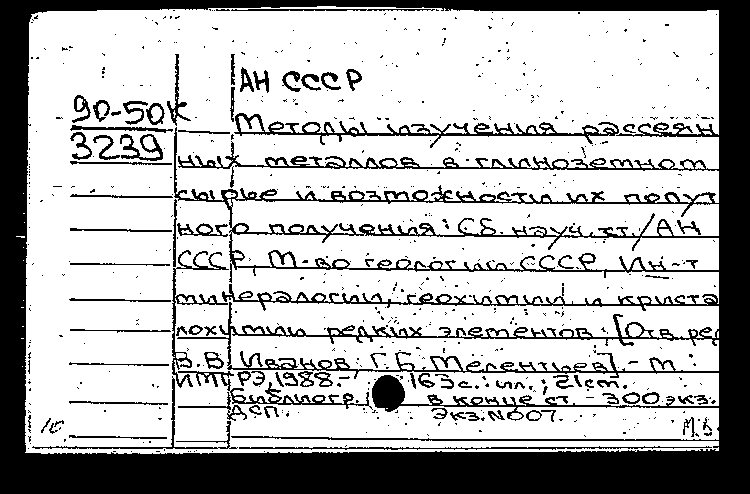 АН СССР
90-50К
3239
Методы изучения рассеян
ных металлов в глиноземном
сырье и возможности их попут
ного получения : Сб. науч. тр. / АН
СССР, М-во геологии СССР, Ин-т
минералогии, геохимии и криста
лохимии редких элементов ; [Отв. ред
В.В. Иванов, Г.Б. Мелентьев] - М :
ИМГРЭ, 1988. - 163 с. : ил. ; 21 см.
Библиогр. в конце ст. - 300 экз.
ДСП. Экз. N007.